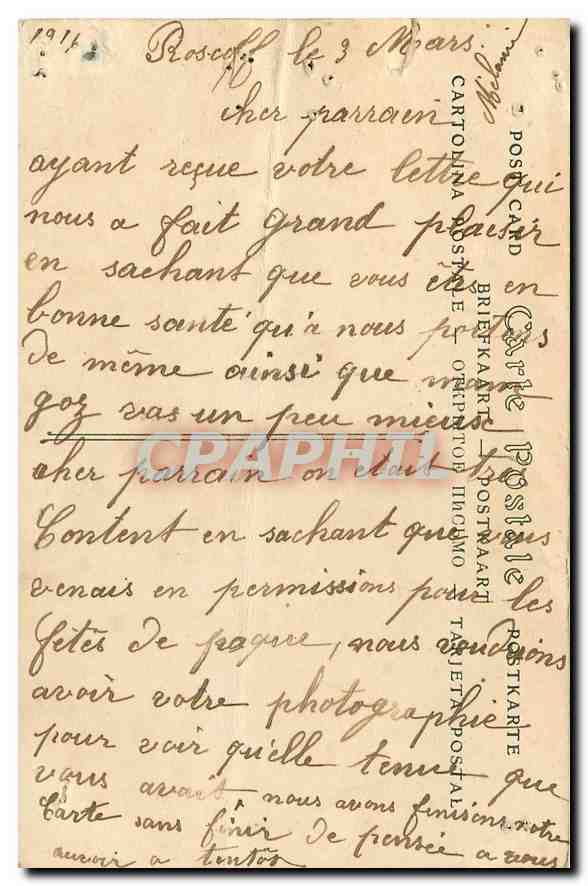 1916
Roscoff le 3 Mars.
cher parrain
ayant reçue votre lettre qui
nous a fait grand plaisir
en sachant que vous êtes en
bonne santé qu'a nous portons
de même ainsi que mam
goz vas un peu mieux
cher parrain on etait tres
Content en sachant que vous
venais en permissions pour les
fêtes de paque, nous voudrions
avoir votre photographie
pour voir qu'elle tenue que
vous avait nous avons finisons notre
Carte sans finir de pensée a vous
auvoir a tentôt
POST CARD Carte Postale POSTKARTE
BRIEFKAART — POSTKAART
CARTOLINA POSTALE — ОТКРЫТОЕ ПИСЬМО — TARJETA POSTAL
CPAPHIL